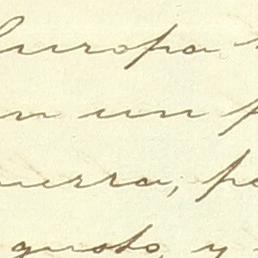 Europa
en un p
uerra, po
gusto, y